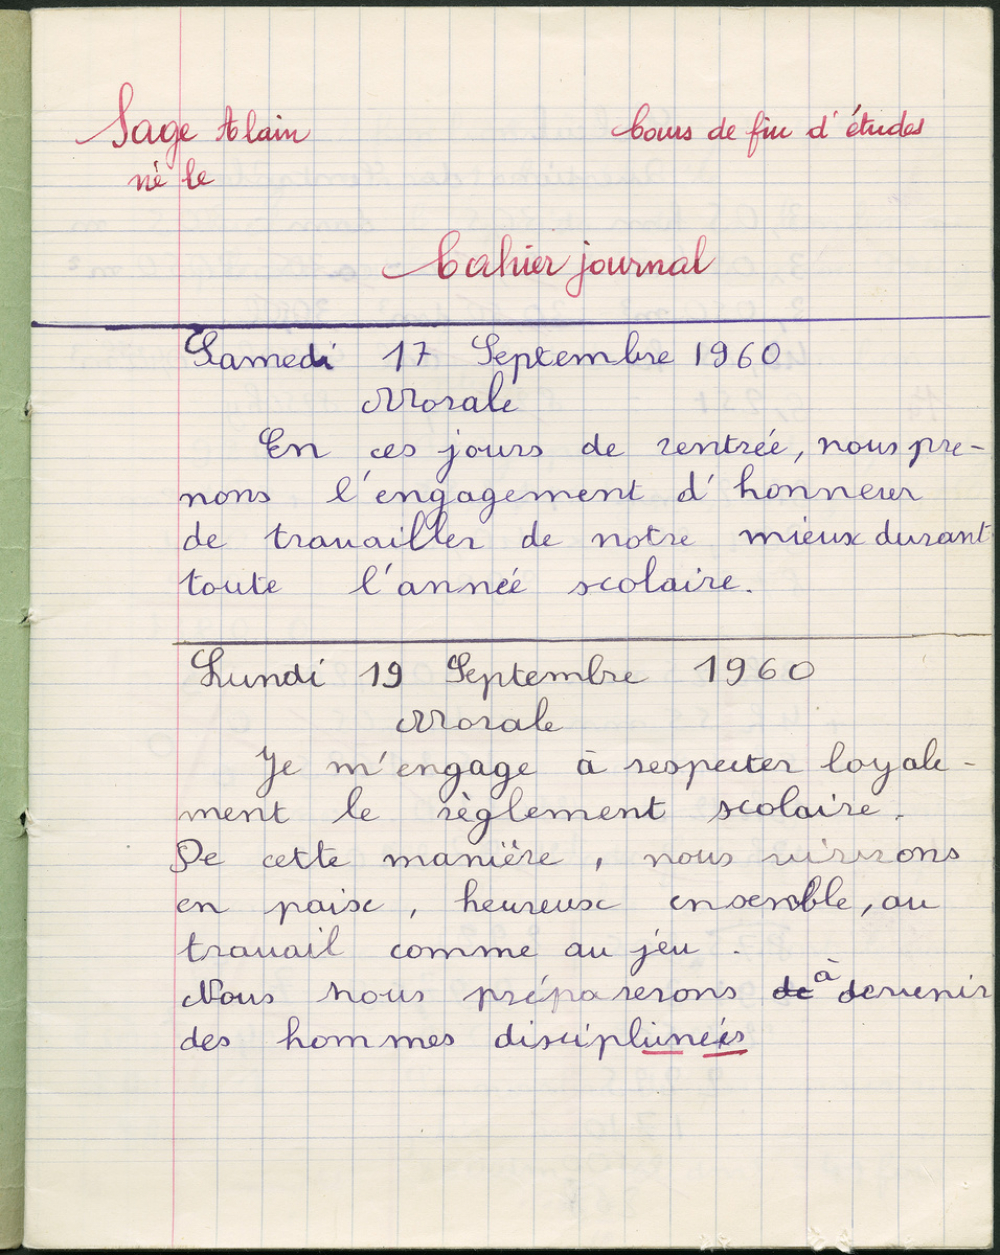 Sage Alain Cours de fin d'études
né le
Cahier journal
Samedi 17 Septembre 1960
Morale
En ces jours de rentrée, nous pre-
nons l'engagement d'honneur
de travailler de notre mieux durant
toute l'année scolaire.
Lundi 19 Septembre 1960
Morale
Je m'engage à respecter loyale-
ment le règlement scolaire.
De cette manière, nous vivrons
en paix, heureux ensemble, au
travail comme au jeu.
Nous nous préparerons de à devenir
des hommes disciplinés